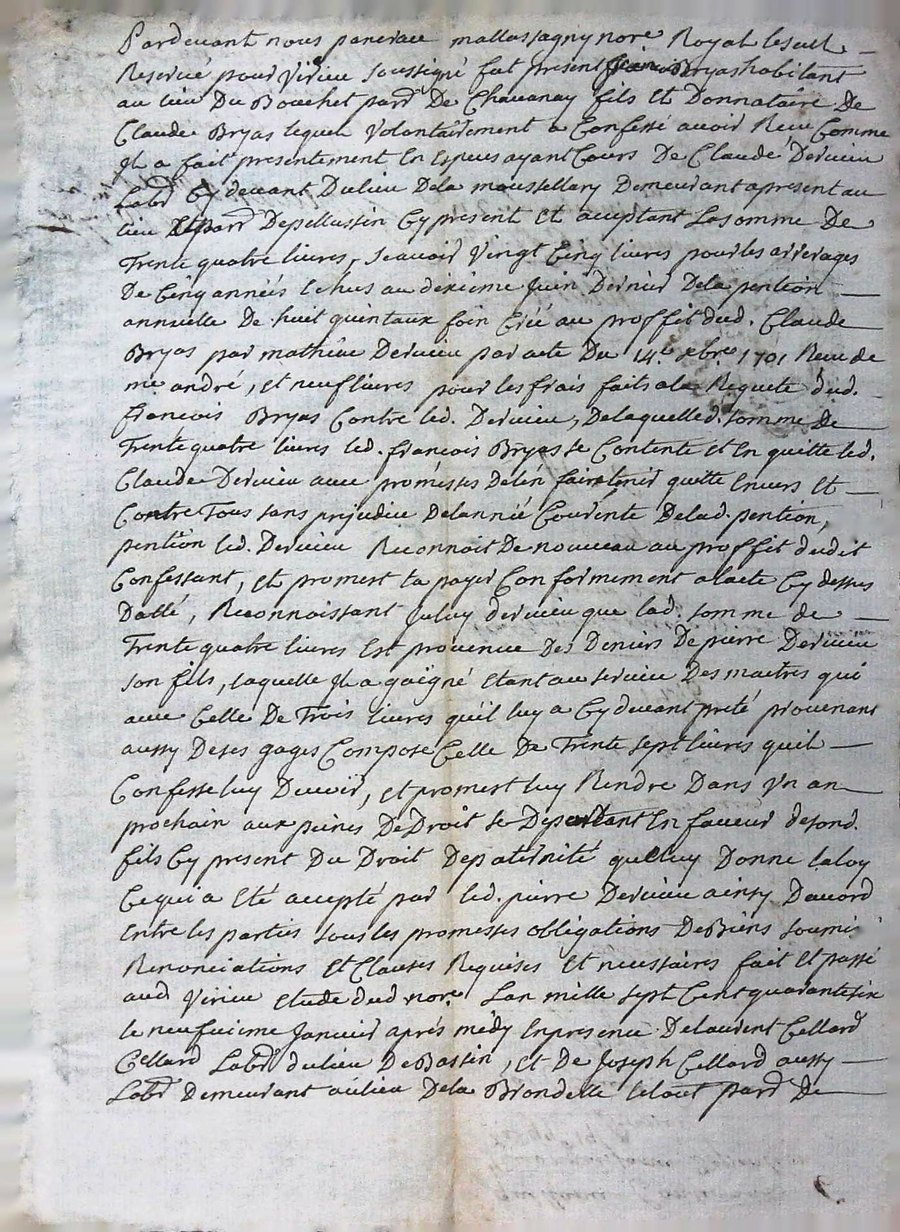 Pardevant nous pancrace mallassagny nore Royal le seul
Reservé pour Virieu soussigné fut present françois Bryas habitant
au lieu Du Bouchet parr De Chavanay fils Et Donnataire De
Claude Bryas lequel Volontairement a Confessé avoir Receu Comme
Il a fait presentement En especes ayant Cours De Claude Dervieu
Labr Cy devant Du lieu Dela moussellary Demeurant apresent au
lieu Et parr Depellussin Cy present Et aceptant La somme De
Trente quatre livres, scavoir Vingt Cinq livres pour les arrerages
De Cinq années Echus au dixieme Juin Dernier Dela pention
annuelle De huit quintaux foin Créé au proffit dud. Claude
Bryas par mathieu Dervieu par acte Du 14e xbre 1701 Receu de
me andré, et neuf livres pour les frais faits ala Requete dud.
francois Bryas Contre led. Dervieu, De laquelle d. somme de
Trente quatre livres led. françois Bryas se Contente Et En quitte led.
Claude Dervieu avec promesses Delen faire tenir quitte Envers Et
Contre Tous sans prejudice De lannée Courente Delad. pention,
pention led. Dervieu Reconnoit De nouveau au proffit dudit
Confessant, Et promest la payer Conformement a lacte Cy dessus
Datté, Reconnoissant Iceluy dervieu que lad. somme de
Trente quatre livres Est provenue Des Deniers De pierre Dervieu
son fils, laquelle Il a gaigné Etant au service Des maitres qui
avec Celle De Trois livres quil luy a Cy devant preté provenant
aussy De ses gages Compose Celle De Trente sept livres quil
Confesse luy Devoir, et promest luy Rendre Dans Un an
prochain aux peines De Droit se Departant En faveur de sond.
fils Cy present Du Droit De paternité que luy Donne la loy
Ce qui a Eté accepté par led. pierre Dervieu ainsy Dacord
Entre les parties sous les promesses obligations De Biens soumis
Renonciations Et Clauses Requises Et necessaires fait Et passé
aud Virieu etude dud nore Lan mille sept Cent quarante six
le neufvieme Janvier aprés midy En presence De laurent Cellard
Cellard Labr du lieu De Bassin, Et De Joseph Cellard aussy
Labr Demeurant au lieu Dela Brondelle le tout parr De